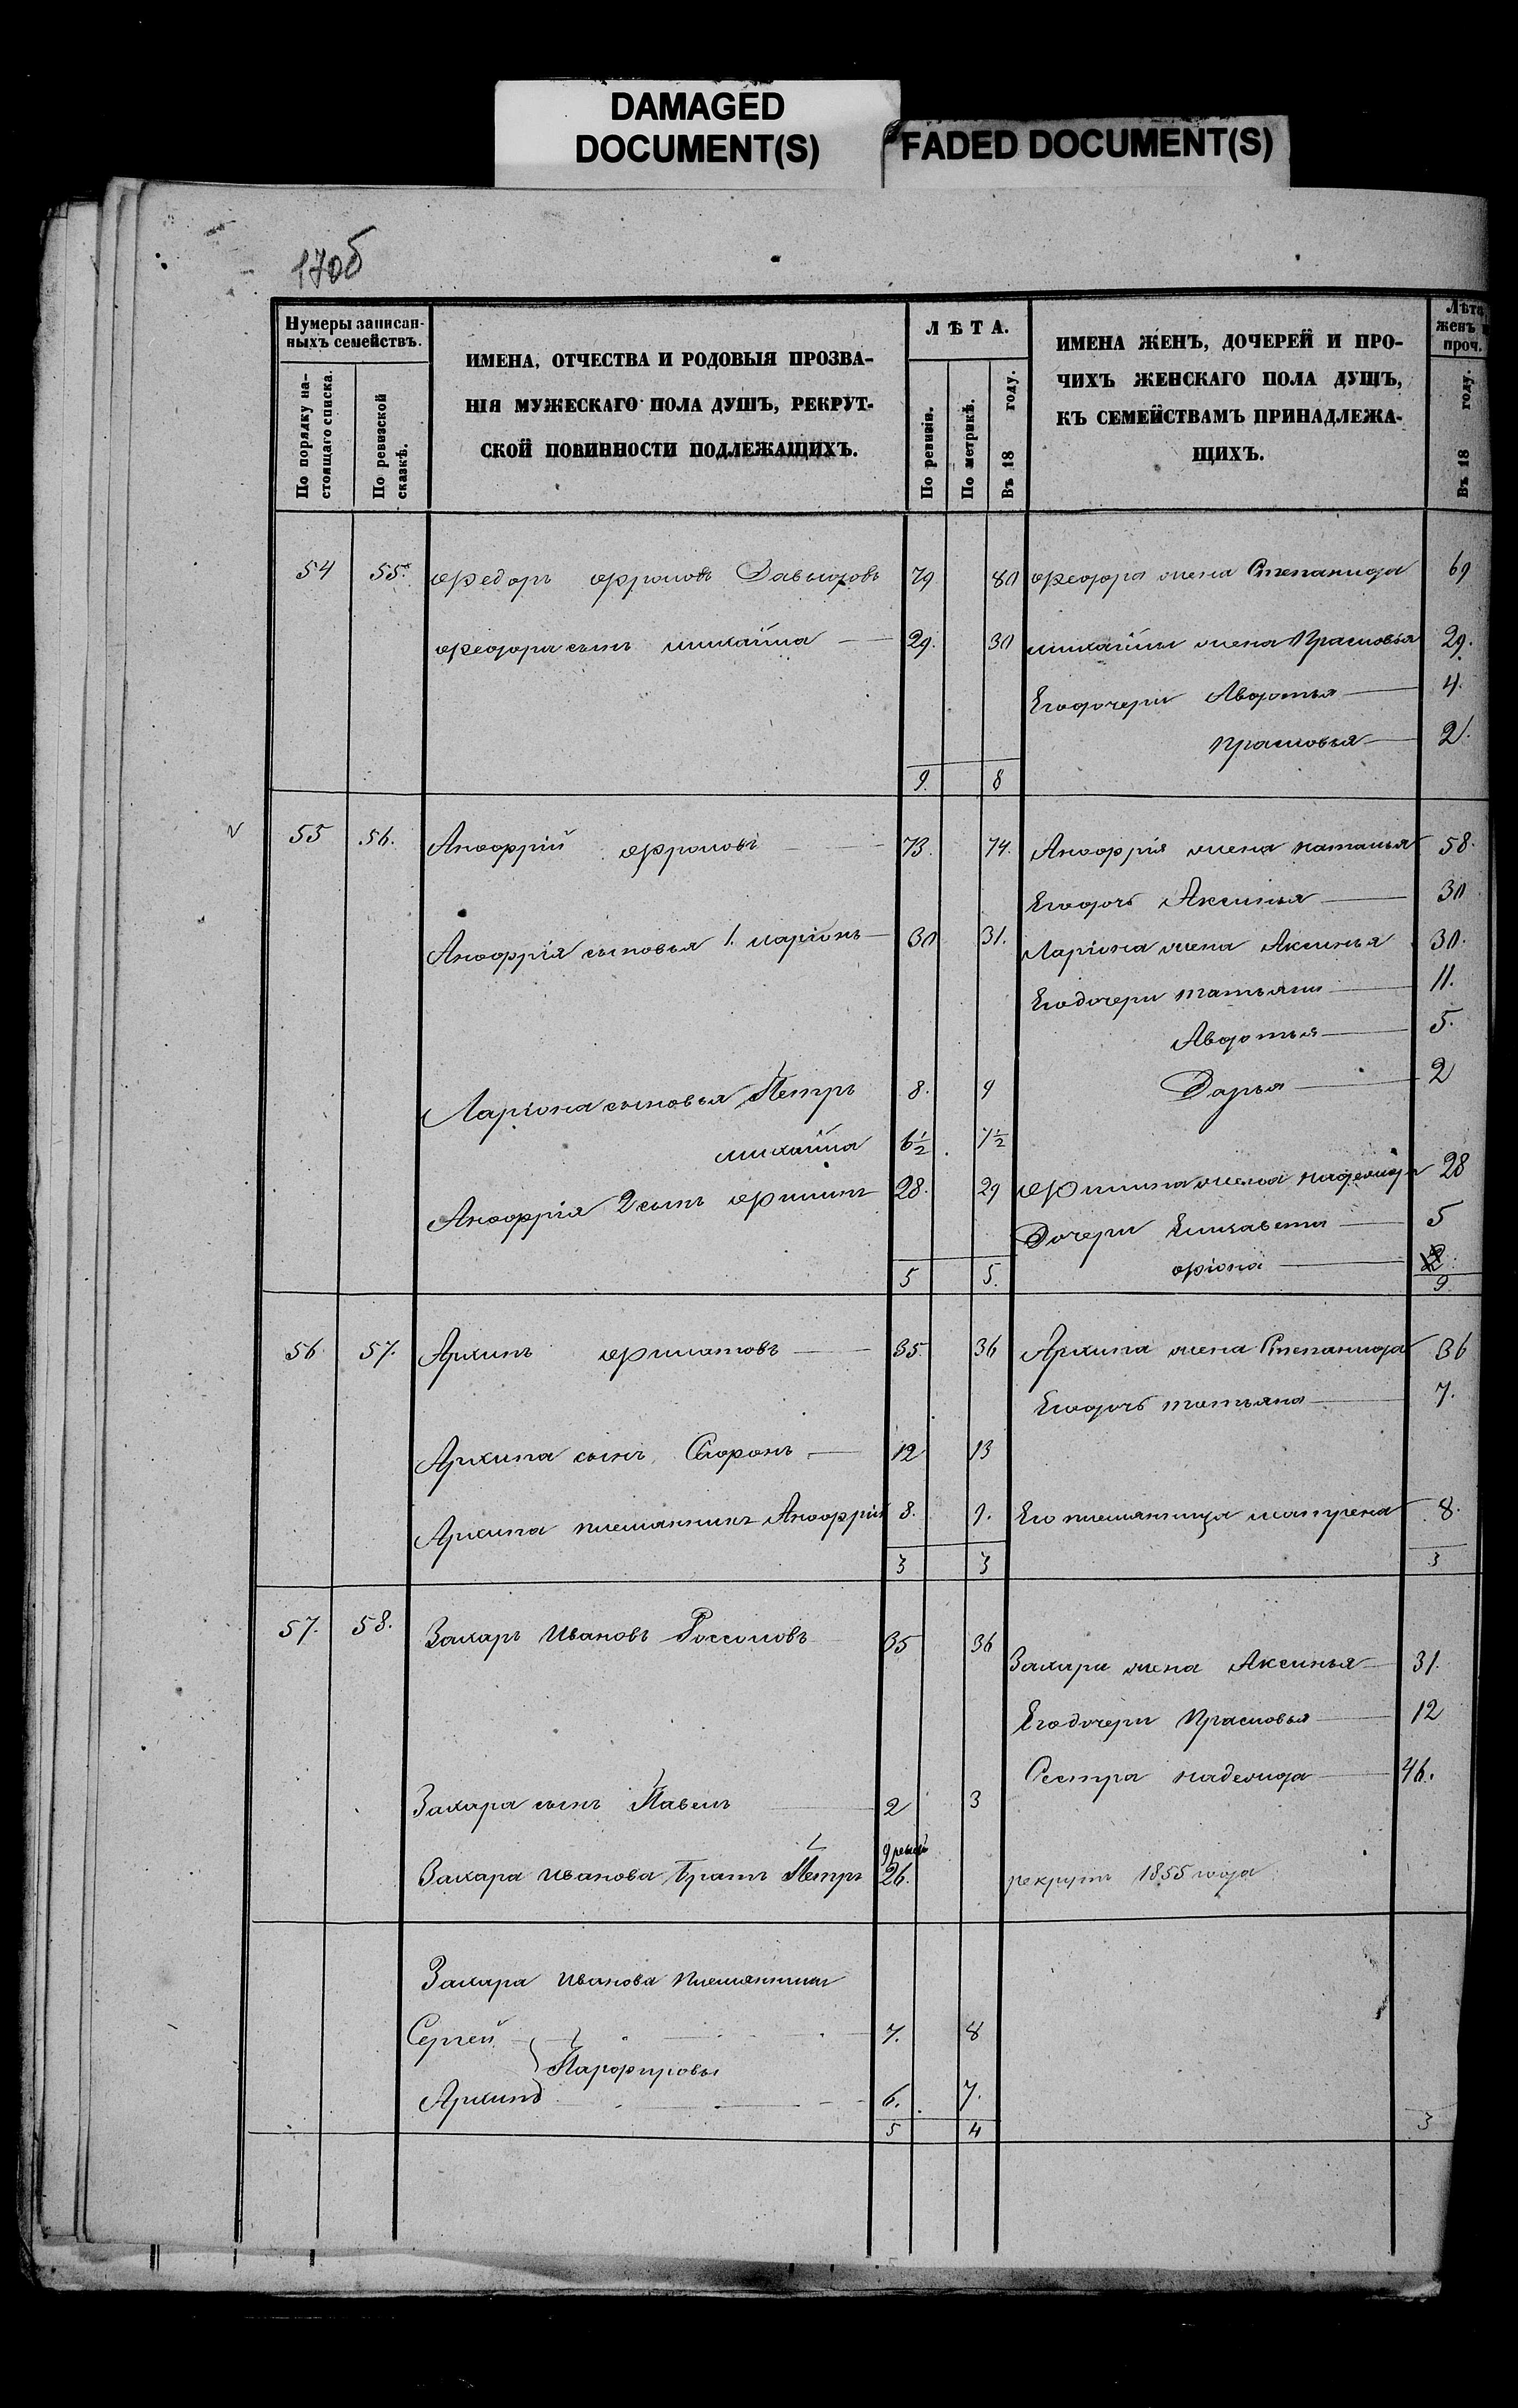 DAMAGED
DOCUMENT(S)
FADED DOCUMENT(S)
170б
Нумеры записан-
ныхъ семействъ.
По порядку на-
стоящаго списка.
По ревизской
сказкѣ.
ИМЕНА, ОТЧЕСТВА И РОДОВЫЯ ПРОЗВА-
НІЯ МУЖЕСКАГО ПОЛА ДУШЪ, РЕКРУТ-
СКОЙ ПОВИННОСТИ ПОДЛЕЖАЩИХЪ.
ЛѢТА.
По ревизіи.
По метрикѣ.
Въ 18 году.
ИМЕНА ЖЕНЪ, ДОЧЕРЕЙ И ПРО-
ЧИХЪ ЖЕНСКАГО ПОЛА ДУШЪ,
КЪ СЕМЕЙСТВАМЪ ПРИНАДЛЕЖА-
ЩИХЪ.
Лѣта
женъ и
проч.
Въ 18 году.
54 55. Федоръ Фроловъ Давыдовъ 79 80 Федора жена Степанида 69
Федора сынъ михайла 29. 30 михайлы жена Прасковья 29.
Его дочери Авдотья 4.
Прасковья 2.
9. 8
55 56. Аноффрій Фроловъ 73. 74. Аноффрія жена наталья 58.
Его дочь Аксинья 30
Аноффрія сыновья 1. ларіонъ 30 31. Ларіона жена Аксинья 30.
Его дочери татьяна 11.
Авдотья 5.
Дарья 2
Ларіона сыновья Петръ 8. 9
михайла 6½ 7½
Аноффрія 2 сынъ филипъ 28. 29 филипа жена надежда 28
Дочери Елизавета 5
5 5.
9
56 57. Архипъ филатовъ 35. 36 Архипа жена Степанида 36
Его дочь татьяна 7.
Архипа сынъ Сафонъ 12 13
Архипа племянникъ Аноффрій 8. 9. Его племянница матрена 8.
3 3 3
57. 58. Захаръ Ивановъ 35 36
Захара жена Аксинья 31.
Его дочери Прасковья 12
Сестра надежда 46.
Захара сынъ Павелъ 2 3
Захара Иванова братъ Петръ 26. рекрутъ 1855 года
Захара Иванова племянники
Сергей 7. 8
Парфировы
Архипъ 6. 7.
5 4 3